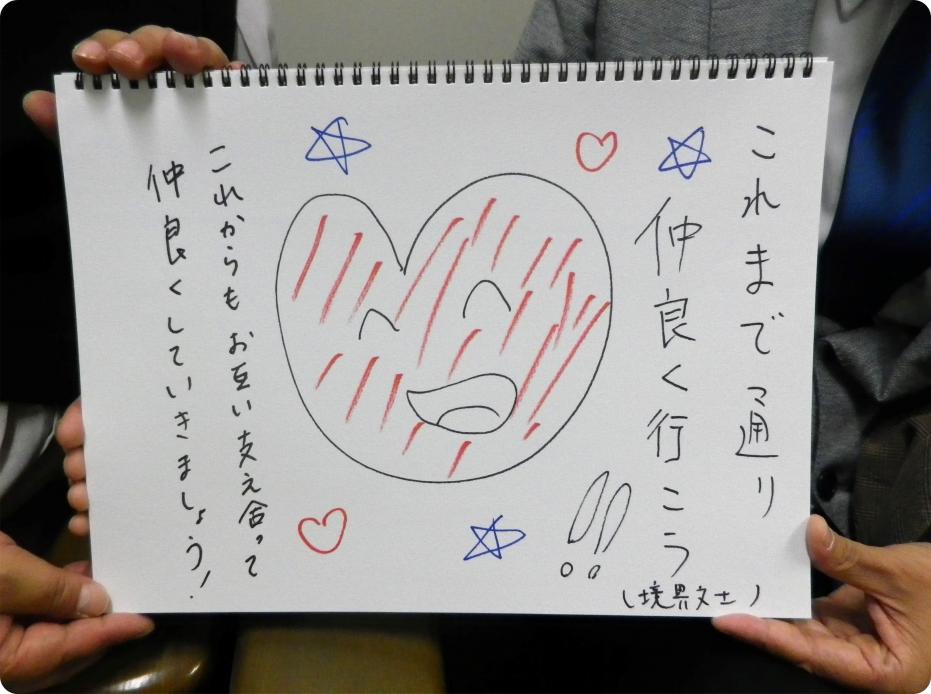 これまで通り
仲良く行こう!!
(境界文士)
これからもお互い支え合って
仲良くしていきましょう!